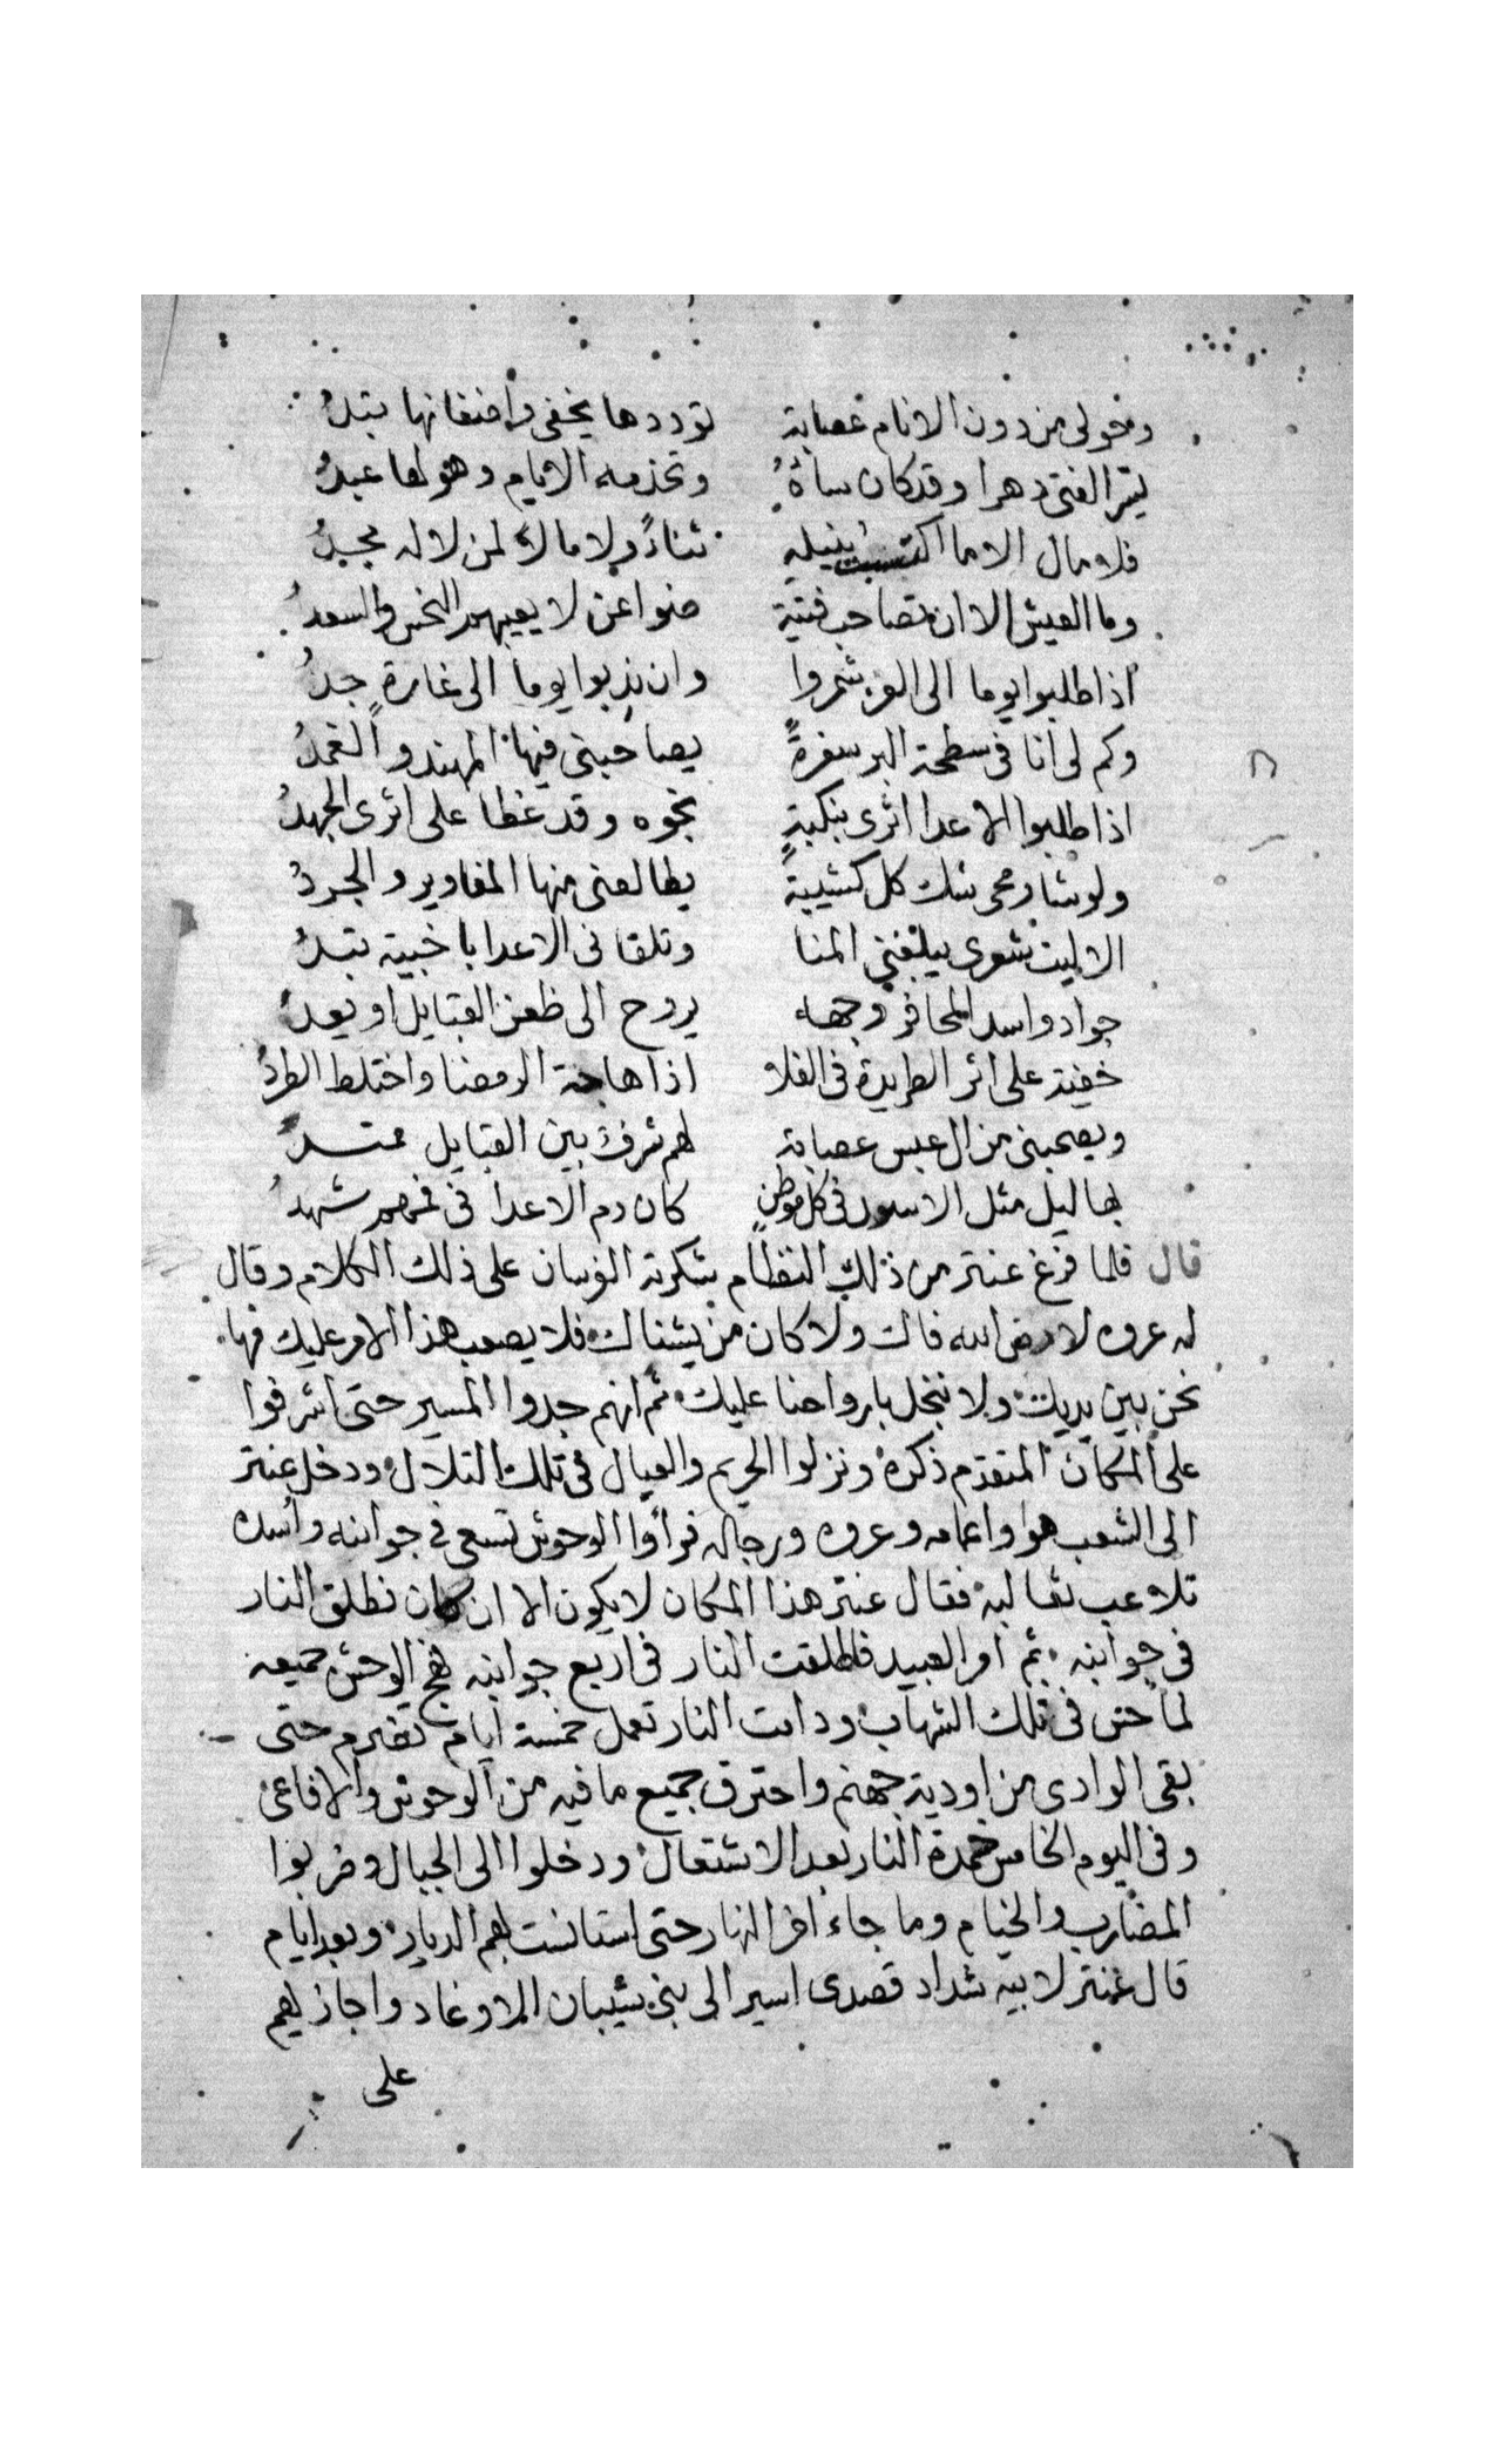 وحولى من دون الانام عصابة توددها يخفى واضغانها تبدُ
يسر الفتى دهرا وقد كان ساءهُ وتخدمه الايام وهو لها عبدُ
فلا مال الا ما اكتسبت بنيله ثناءً ولا مالاً لمن لا له مجدُ
وما العيش الا ان تصاحب فتية ضواعن لا يعييهم النحس والسعدُ
اذا طلبوا يوما الى الغزو شمروا وان ندبوا يوما الى غارةٍ جدُ
وكم لى انا فى سطحة البر سفرةً يصاحبنى فيها المهند والغمدُ
اذا طلبوا الاعدا اثرى بنكبةٍ نجوه وقد غطا على اثرى الجهدُ
ولو شا رمحى شك كل كتيبةً يطالعنى منها المغاوير والجردُ
الا ليت شعرى يبلغني المنا وتلقا نى الاعدا با خيبة تبدُ
جواد واسد المحافر وجهاء يروح الى ظعن القبايل او يغدُ
خفية على اثر الطريدة فى الفلا اذا هاجة الرمضا واختلط الطردُ
ويصحبنى من ال عبس عصابة لهم شرفٌ بين القبايل ممتدُ
بهاليل مثل الاسود فى كل موطنٍ كان دم الاعدا فى فمهم شهدُ
قال فلما فرغ عنتر من ذلك النظام شكرته الفرسان على ذلك الكلام وقال
له عروه لا فض الله فاك ولا كان من يشناك فلا يصعب هذا الامر عليك فها
نحن بين يديك ولا نبخل بارواحنا عليك ثم انهم جدوا المسير حتى اشرفوا
على المكان المتقدم ذكره ونزلوا الحريم والعيال فى تلك التلال ودخل عنتر
الى الشعب هو واعمامه وعروه ورجاله فرأوا الوحوش تسعى فى جوانبه واسده
تلاعب ثعالبه فقال عنتر هذا المكان لا يكون الا ان كان نطلق النار
فى جوانبه ثم امر العبيد فاطلقت النار فى اربع جوانبه فهج الوحش جميعه
لما حس فى تلك الشهاب ودامت النار تعمل خمسة ايام تضرم حتى
بقى الوادى من اودية جهنم واحترق جميع ما فيه من الوحوش والافاعى
وفى اليوم الخامس خمدة النار بعد الاشتعال ودخلوا الى الجبال وضربوا
المضارب والخيام وما جاء اخر النهار حتى استانست بهم الديار وبعد ايام
قال عنتر لابيه شداد قصدى اسير الى بنى شيبان الاوغاد واجازيهم
على